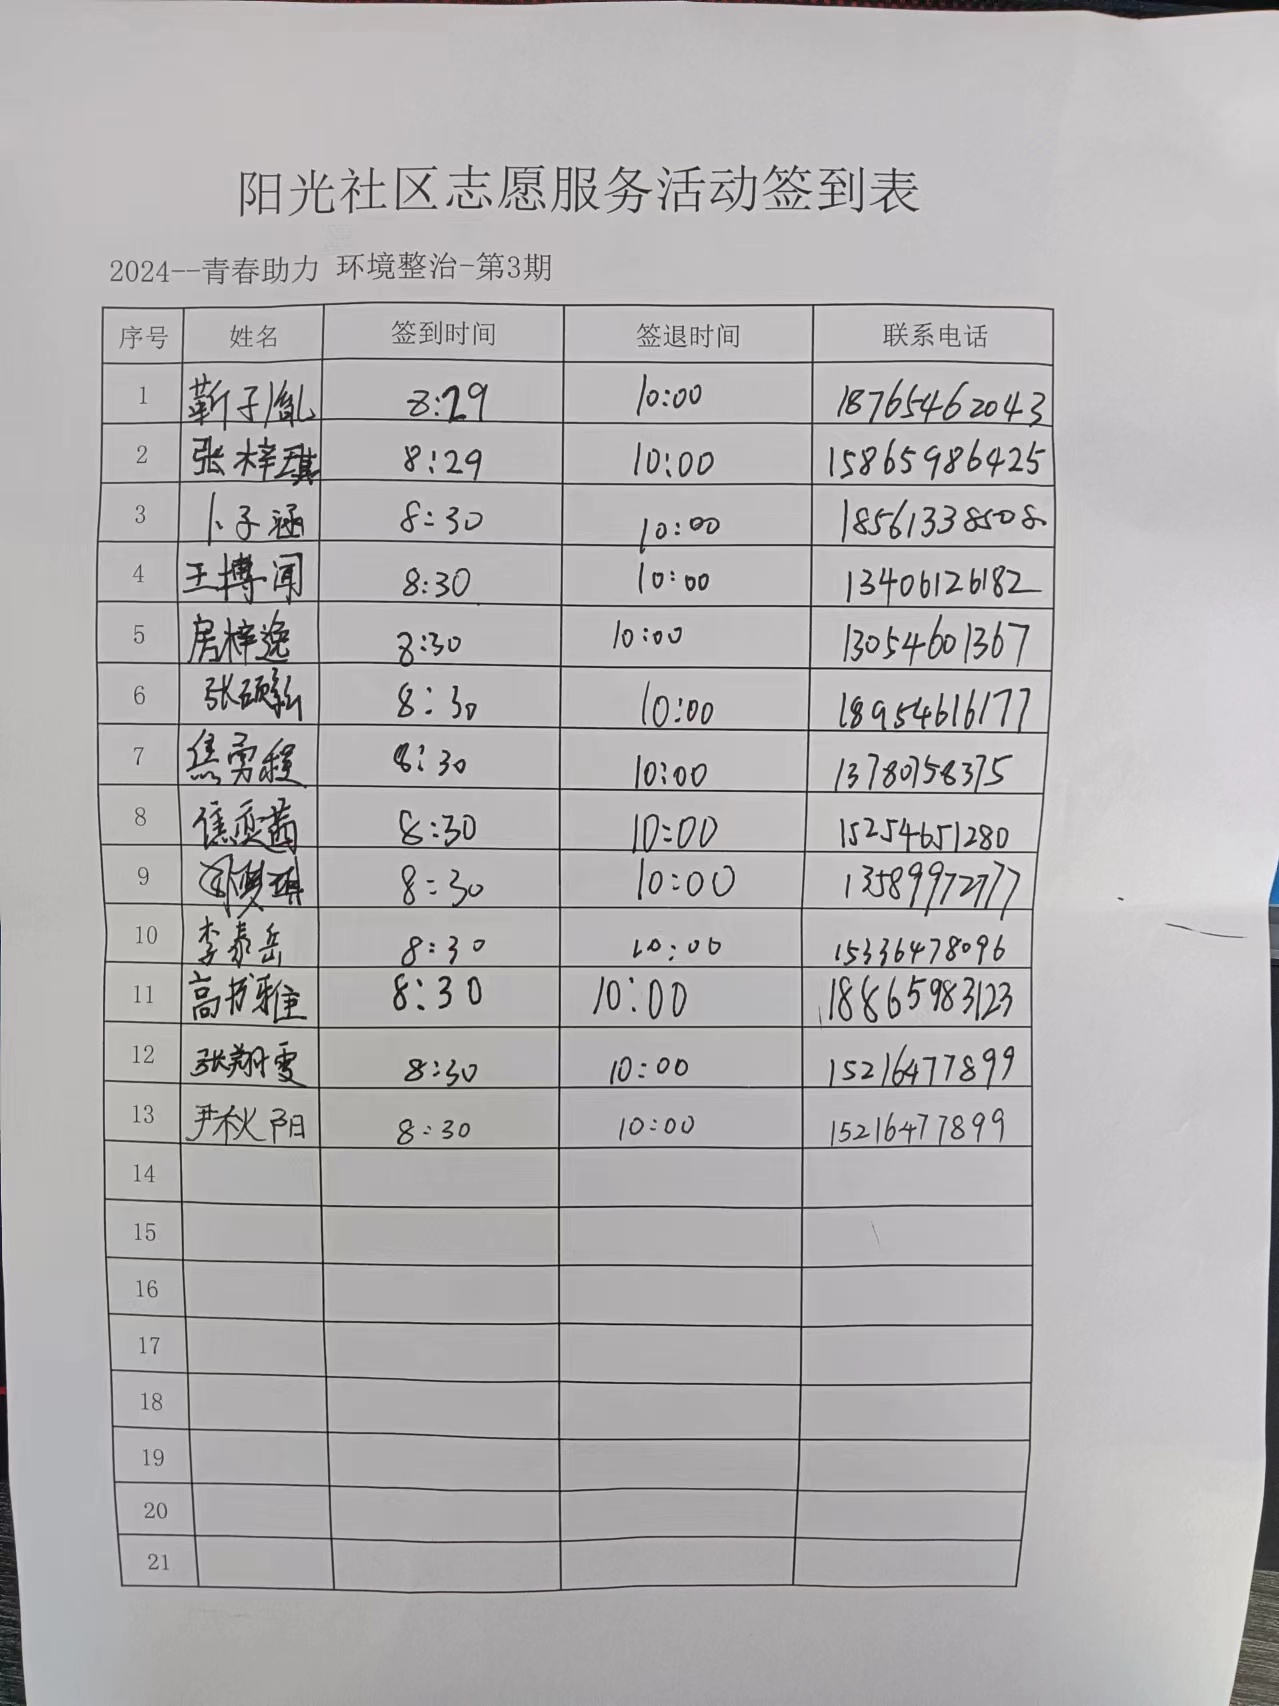 阳光社区志愿服务活动签到表
2024--青春助力 环境整治-第3期
序号 姓名 签到时间 签退时间 联系电话
1 靳子胤 8:29 10:00 18765462043
2 张梓琪 8:29 10:00 15865986425
3 卜子涵 8:30 10:00 18561338508
4 王博闻 8:30 10:00 13406126182
5 房梓逸 8:30 10:00 13054601367
6 张硕 8:30 10:00 18954616177
7 焦勇程 8:30 10:00 13780758375
8 8:30 10:00 15254651280
9 8:30 10:00 13589972777
10 李泰岳 8:30 10:00 15336478096
11 高书雅 8:30 10:00 18865983123
12 张翔雯 8:30 10:00 15216477899
13 尹秋阳 8:30 10:00 15216477899
14
15
16
17
18
19
20
21